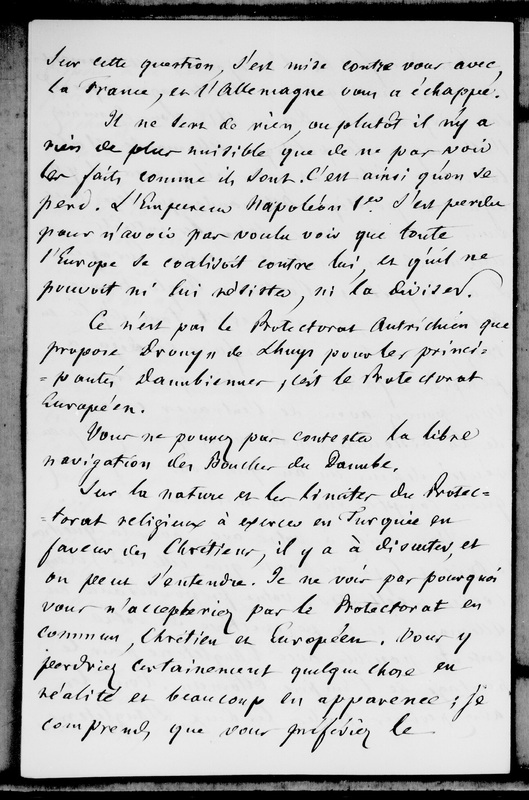 Sur cette question, s'est mise contre vous avec
la France, et l'Allemagne vous a échappé.
Il ne sert de rien, ou plutôt il n'y a
rien de plus nuisible que de ne pas voir
les faits comme ils sont. C'est ainsi qu'on se
perd. L'Empereur Napoléon 1er s'est perdu
pour n'avoir pas voulu voir que toute
l'Europe se coalisoit contre lui, et qu'il ne
pouvoit ni lui résister, ni la diviser.
Ce n'est pas le Protectorat Autrichien que
propose Drouyn de Lhuys pour les princi-
=pautés Danubiennes, c'est le Protectorat
Européen.
Vous ne pouvez pas contester la libre
navigation des Bouches du Danube.
Sur la nature et les limites du Protec=
=torat religieux à exercer en Turquie en
faveur des Chrétiens, il y a à discuter, et
on peut s'entendre. Je ne vois pas pourquoi
vous n'accepteriez pas le Protectorat en
commun, Chrétien et Européen. Vous y
perdriez certainement quelque chose en
réalité et beaucoup en apparence ; je
comprends que vous préfériez le